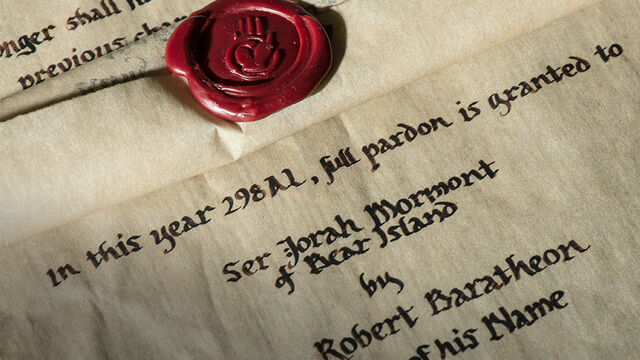 onger shall h
previous cha
In this year 298AL, full pardon is granted to
Ser Jorah Mormont
of Bear Island
by
Robert Baratheon
of his Name